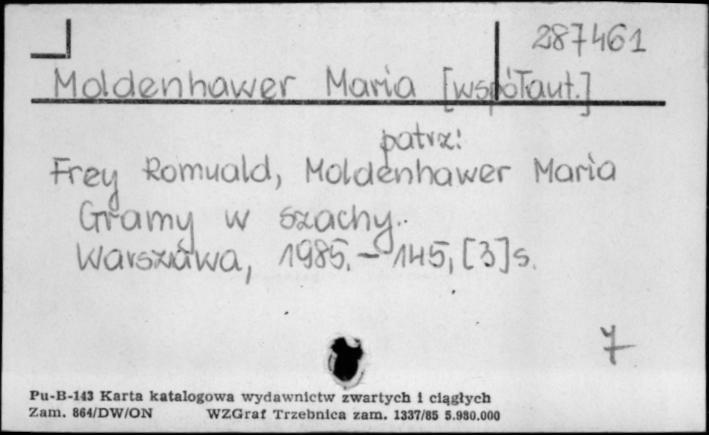 287461
Moldenhawer Maria [współaut.]
patrz:
Frey Romuald, Moldenhawer Maria
Gramy w szachy.
Warszawa, 1985. – 145, [3] s.
7
Pu-B-143 Karta katalogowa wydawnictw zwartych i ciągłych
Zam. 864/DW/ON WZGraf Trzebnica zam. 1337/85 5.980.000